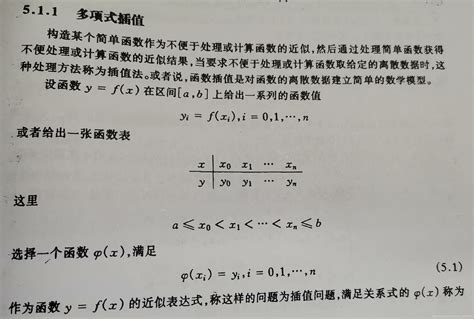 5.1.1 多项式插值
构造某个简单函数作为不便于处理或计算函数的近似,然后通过处理简单函数获得
不便处理或计算函数的近似结果,当要求不便于处理或计算函数取给定的离散数据时,这
种处理方法称为插值法。或者说,函数插值是对函数的离散数据建立简单的数学模型。
设函数 y = f(x) 在区间[a,b]上给出一系列的函数值
yᵢ = f(xᵢ), i = 0,1,⋯,n
或者给出一张函数表
x x₀ x₁ ⋯ xₙ
y y₀ y₁ ⋯ yₙ
这里
a ⩽ x₀ < x₁ < ⋯ < xₙ ⩽ b
选择一个函数 φ(x),满足
φ(xᵢ) = yᵢ, i = 0,1,⋯,n (5.1)
作为函数 y = f(x) 的近似表达式,称这样的问题为插值问题,满足关系式的 φ(x) 称为